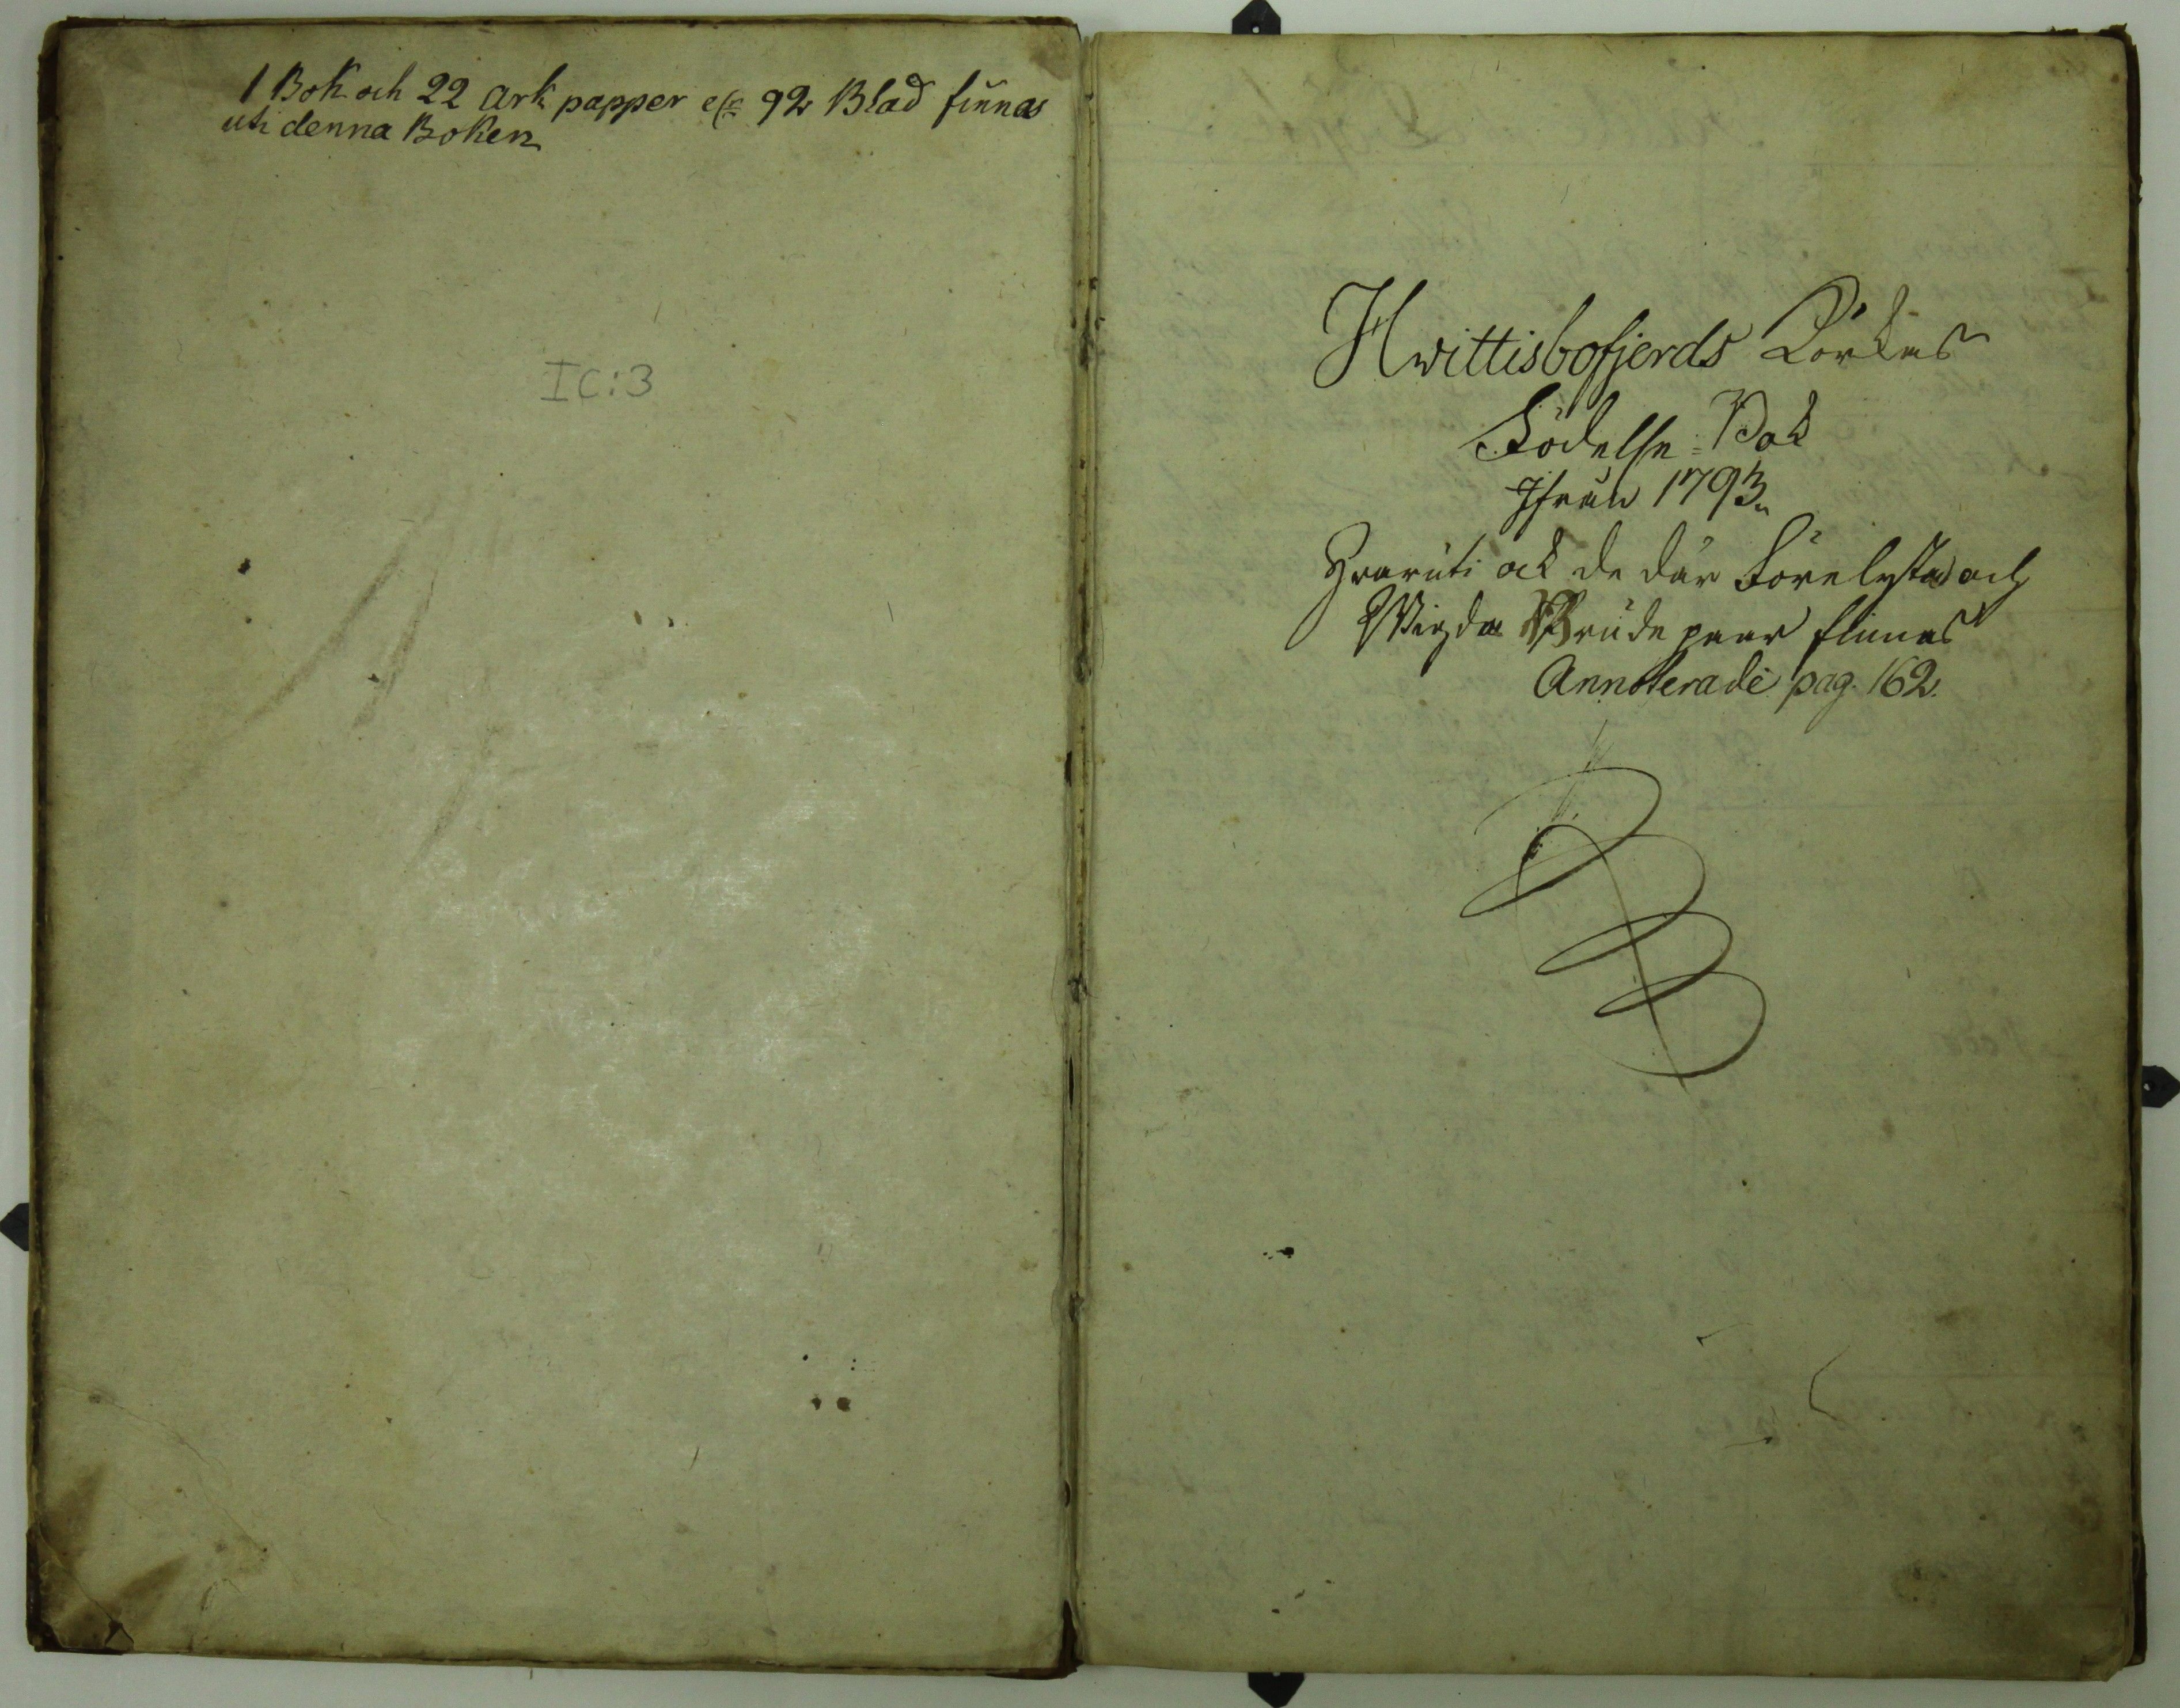 1 Bok och 22 Ark papper eſr 92 Blad finnas
uti denna Boken
IC:3
Hwittisbofjerds Körkas
Födelse-Bok
Ifrån 1793.
Hvaruti ock de där Förelysta och
Wigda Brudepaar finnas
Annoterade pag. 162.